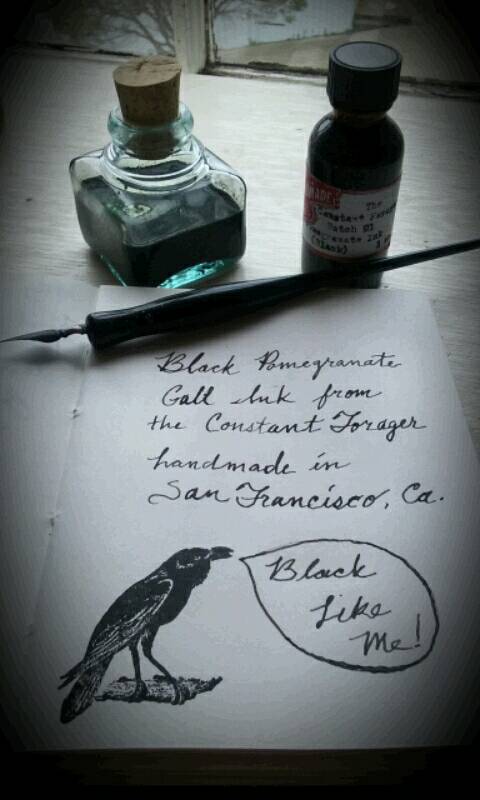 MADE!
The
Batch 01
Pomegranate Ink
(Black)
Black Pomegranate
Gall Ink from
the Constant Forager
handmade in
San Francisco, Ca.
Black
Like
Me!